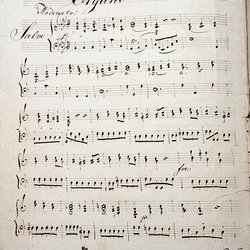 Organo
Moderato
Salve
for
p